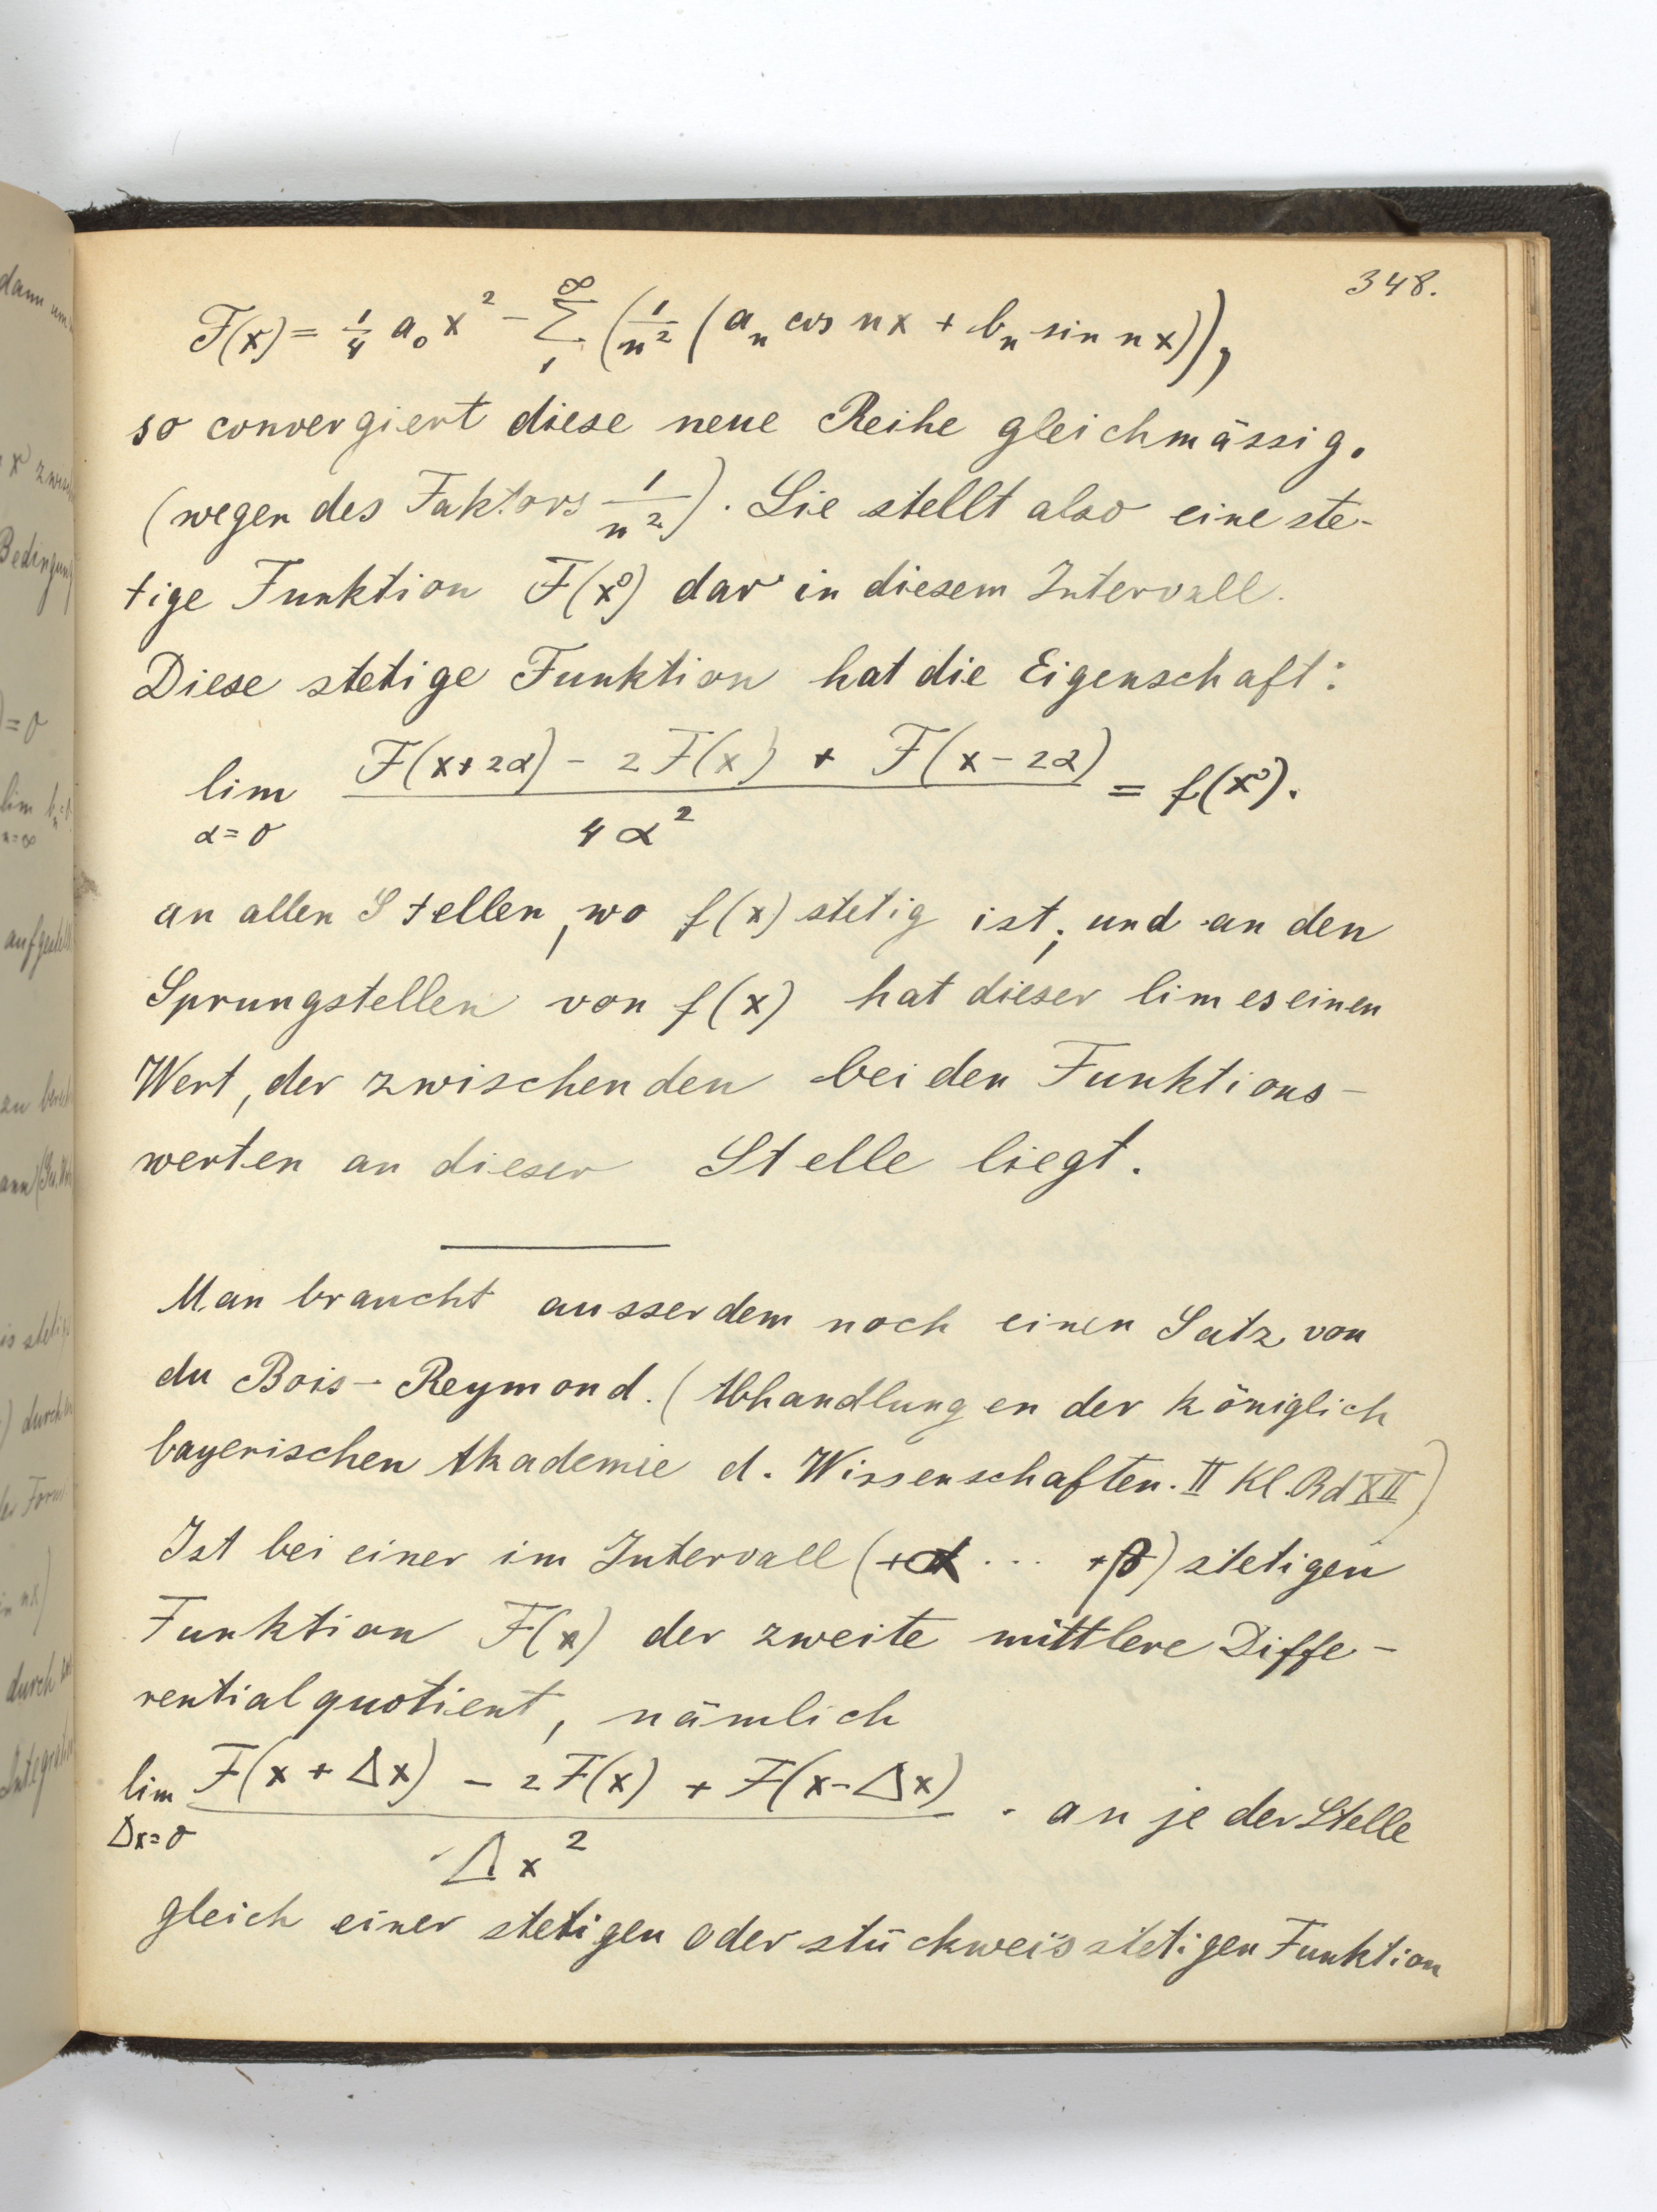 348.
F(x) = 1/4 a₀ x² - ∑₁^∞ (1/n² (aₙ cos nx + bₙ sin nx)),
so convergiert diese neue Reihe gleichmässig.
(wegen des Faktors 1/n²). Sie stellt also eine ste-
tige Funktion F(x) dar in diesem Intervall.
Diese stetige Funktion hat die Eigenschaft:
lim α=0 (F(x+2α) - 2F(x) + F(x-2α))/4α² = f(x).
an allen Stellen, wo f(x) stetig ist; und an den
Sprungstellen von f(x) hat dieser limes einen
Wert, der zwischen den beiden Funktions-
werten an dieser Stelle liegt.
Man braucht ausserdem noch einen Satz von
du Bois-Reymond. (Abhandlungen der königlich
bayerischen Akademie d. Wissenschaften. II Kl. Bd XII)
Ist bei einer im Intervall (+α ... +β) stetigen
Funktion F(x) der zweite mittlere Diffe-
rentialquotient, nämlich
lim Δx=0 (F(x+Δx) - 2F(x) + F(x-Δx))/Δx² . an jeder Stelle
gleich einer stetigen oder stückweis stetigen Funktion
dann
Bedingung
)=0
lim
n=∞
durch